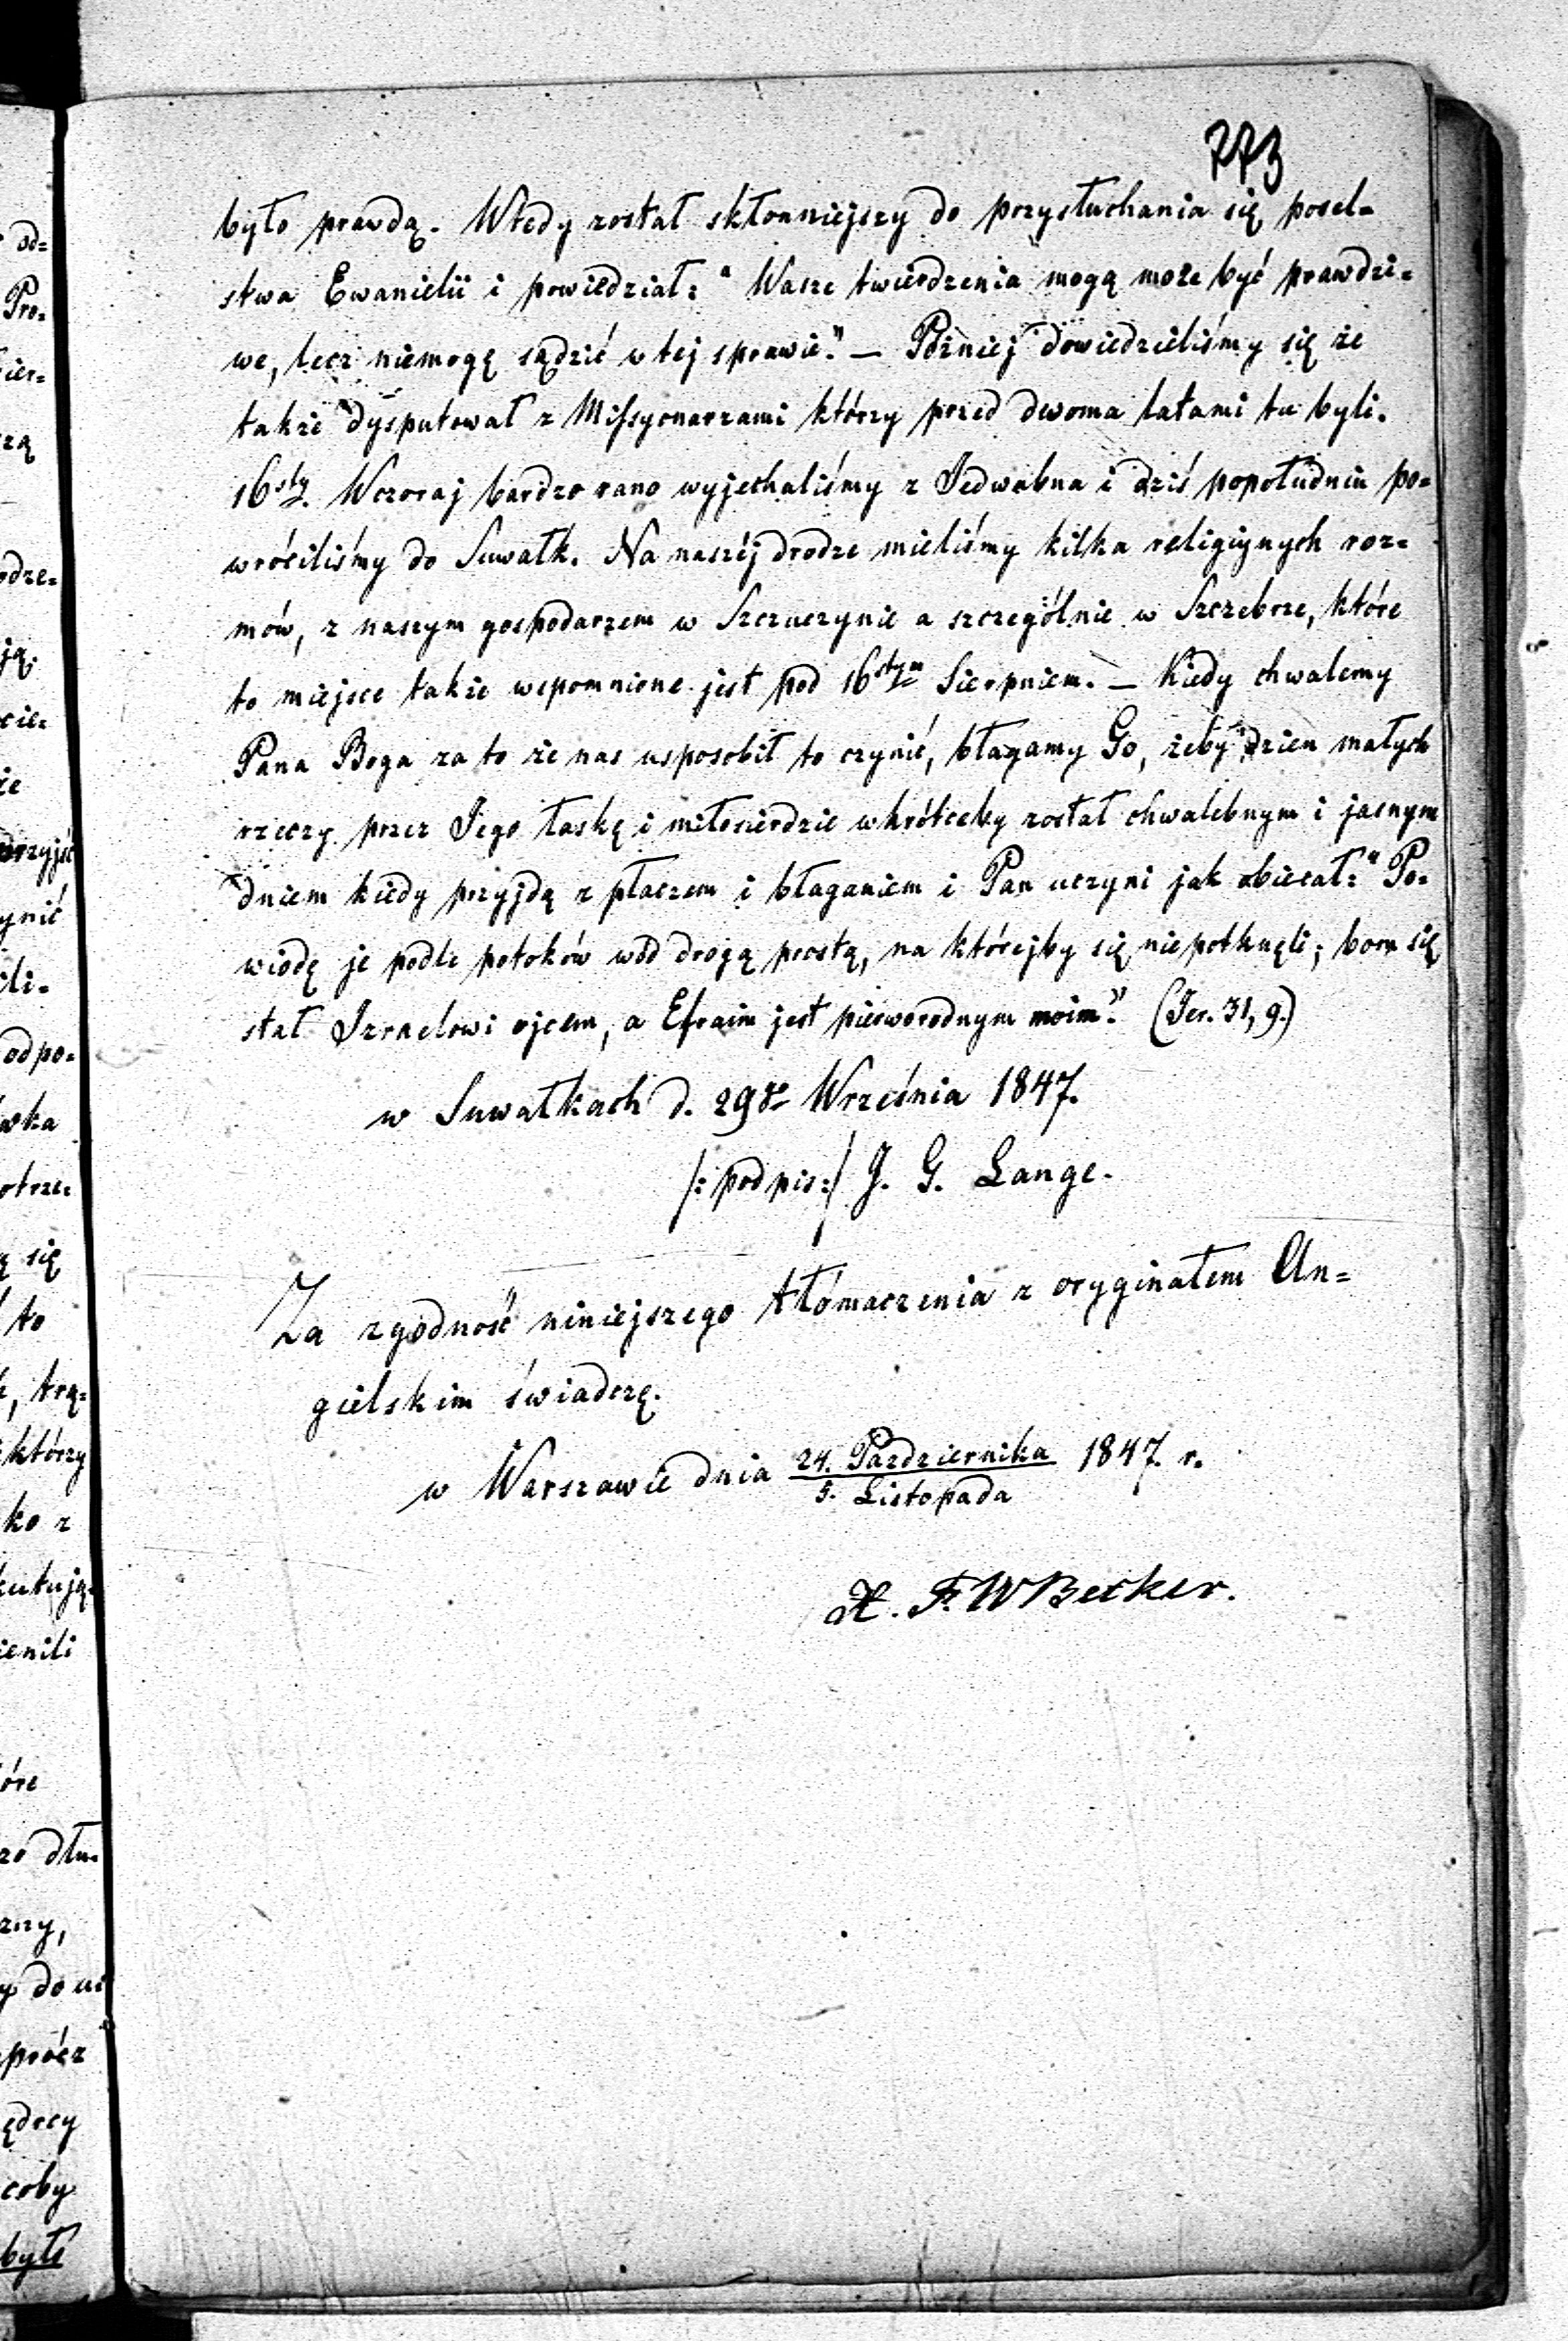 773
było prawdą. Wtedy został skłonniejszy do przysłuchania się posel=
stwa Ewanielii i powiedział: "Wasze twierdzenia mogą może być prawdzi=
we, lecz niemogę sądzić w tej sprawie." — Później dowiedzieliśmy się że
także dysputował z Missyonarzami którzy przed dwoma latami tu byli.
16sty. Wczoraj bardzo rano wyjechaliśmy z Jedwabna i dziś popołudniu po=
wróciliśmy do Suwałk. Na naszéj drodze mieliśmy kilka religijnych roz=
mów, z naszym gospodarzem w Szczuczynie a szczególnie w Szczebrze, które
to miejsce także wspomnione jest pod 16stym Sierpniem. — Kiedy chwalemy
Pana Boga za to że nas usposobił to czynić, błagamy Go, żeby dzien małych
rzeczy przez Jego łaskę i miłosierdzie wkrótceby został chwalebnym i jasnym
dniem kiedy przyjdą z płaczem i błaganiem i Pan uczyni jak obiecał: "Po=
wiodę je podle potoków wód drogą prostą, na którejby się niepotknęli; bom się
stał Izraelowi ojcem, a Efraim jest pierworodnym moim." (Jer. 31, 9.)
w Suwałkach d. 29go Września 1847.
/: podpis :/ J. G. Lange.
Za zgodność niniejszego tłómaczenia z oryginałem An=
gielskim świadczę.
w Warszawie dnia 24. Pazdziernika / 5. Listopada 1847. r.
H. F. W Becker.
od=
Pro=
zą
odze=
ją.
cie=
że
przyjść
ynić
ili=
odpo=
wka
otrze=
ę się
to
, trą=
którzy
ko z
kutują=
ienili
óre
zo dłu=
zny,
y do ni
prócz
ędrcy
coby
byłe